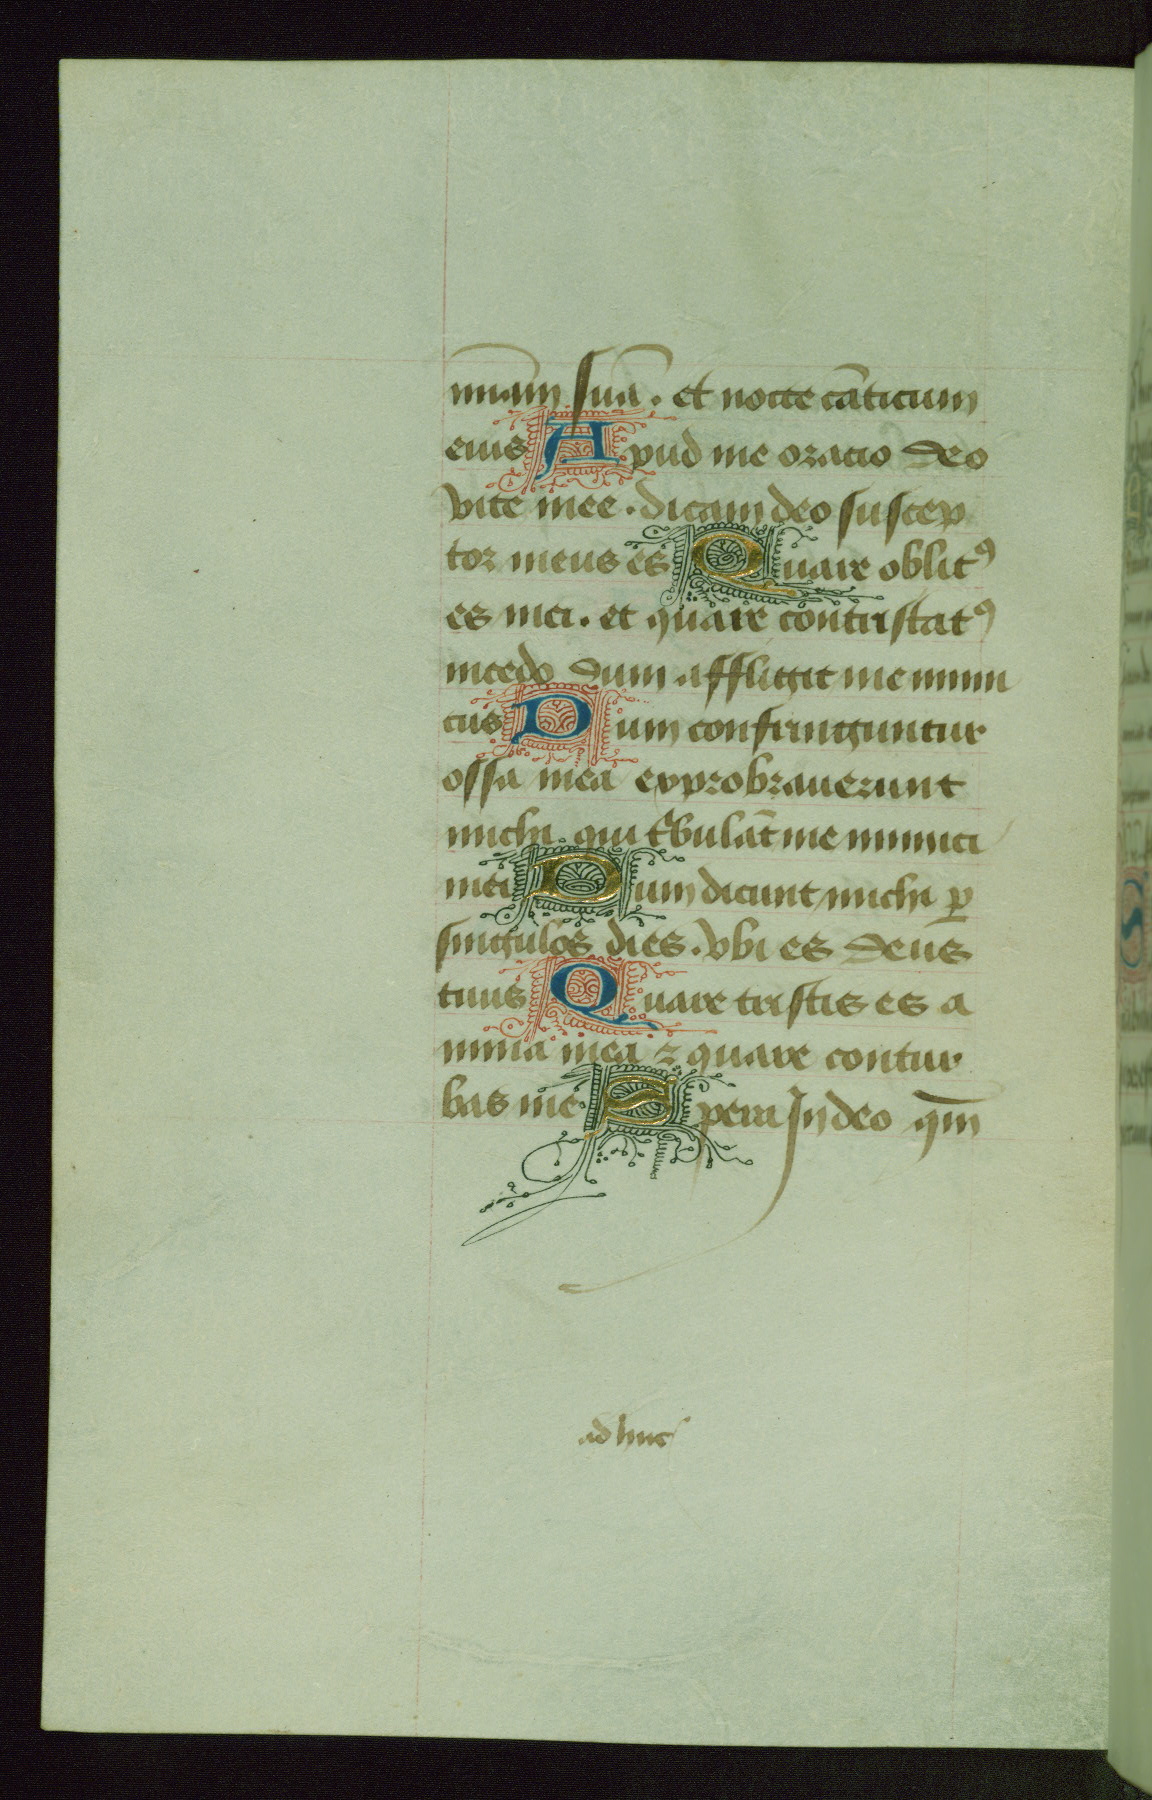 mīam suā. et nocte cāticum
eius Apud me oracio deo
vite mee. dicam deo suscep
tor meus es Quare oblitꝰ
es mei. et quare contristatꝰ
incedo dum affligit me inimi
cus Dum confringuntur
ossa mea exprobrauerunt
michi qui tͥbulāt me inimici
mei Dum dicunt michi ꝑ
singulos dies. vbi es deus
tuus Quare tristis es a
nima mea ⁊ quare contur
bas me Spera In deo qm̄
adhuc